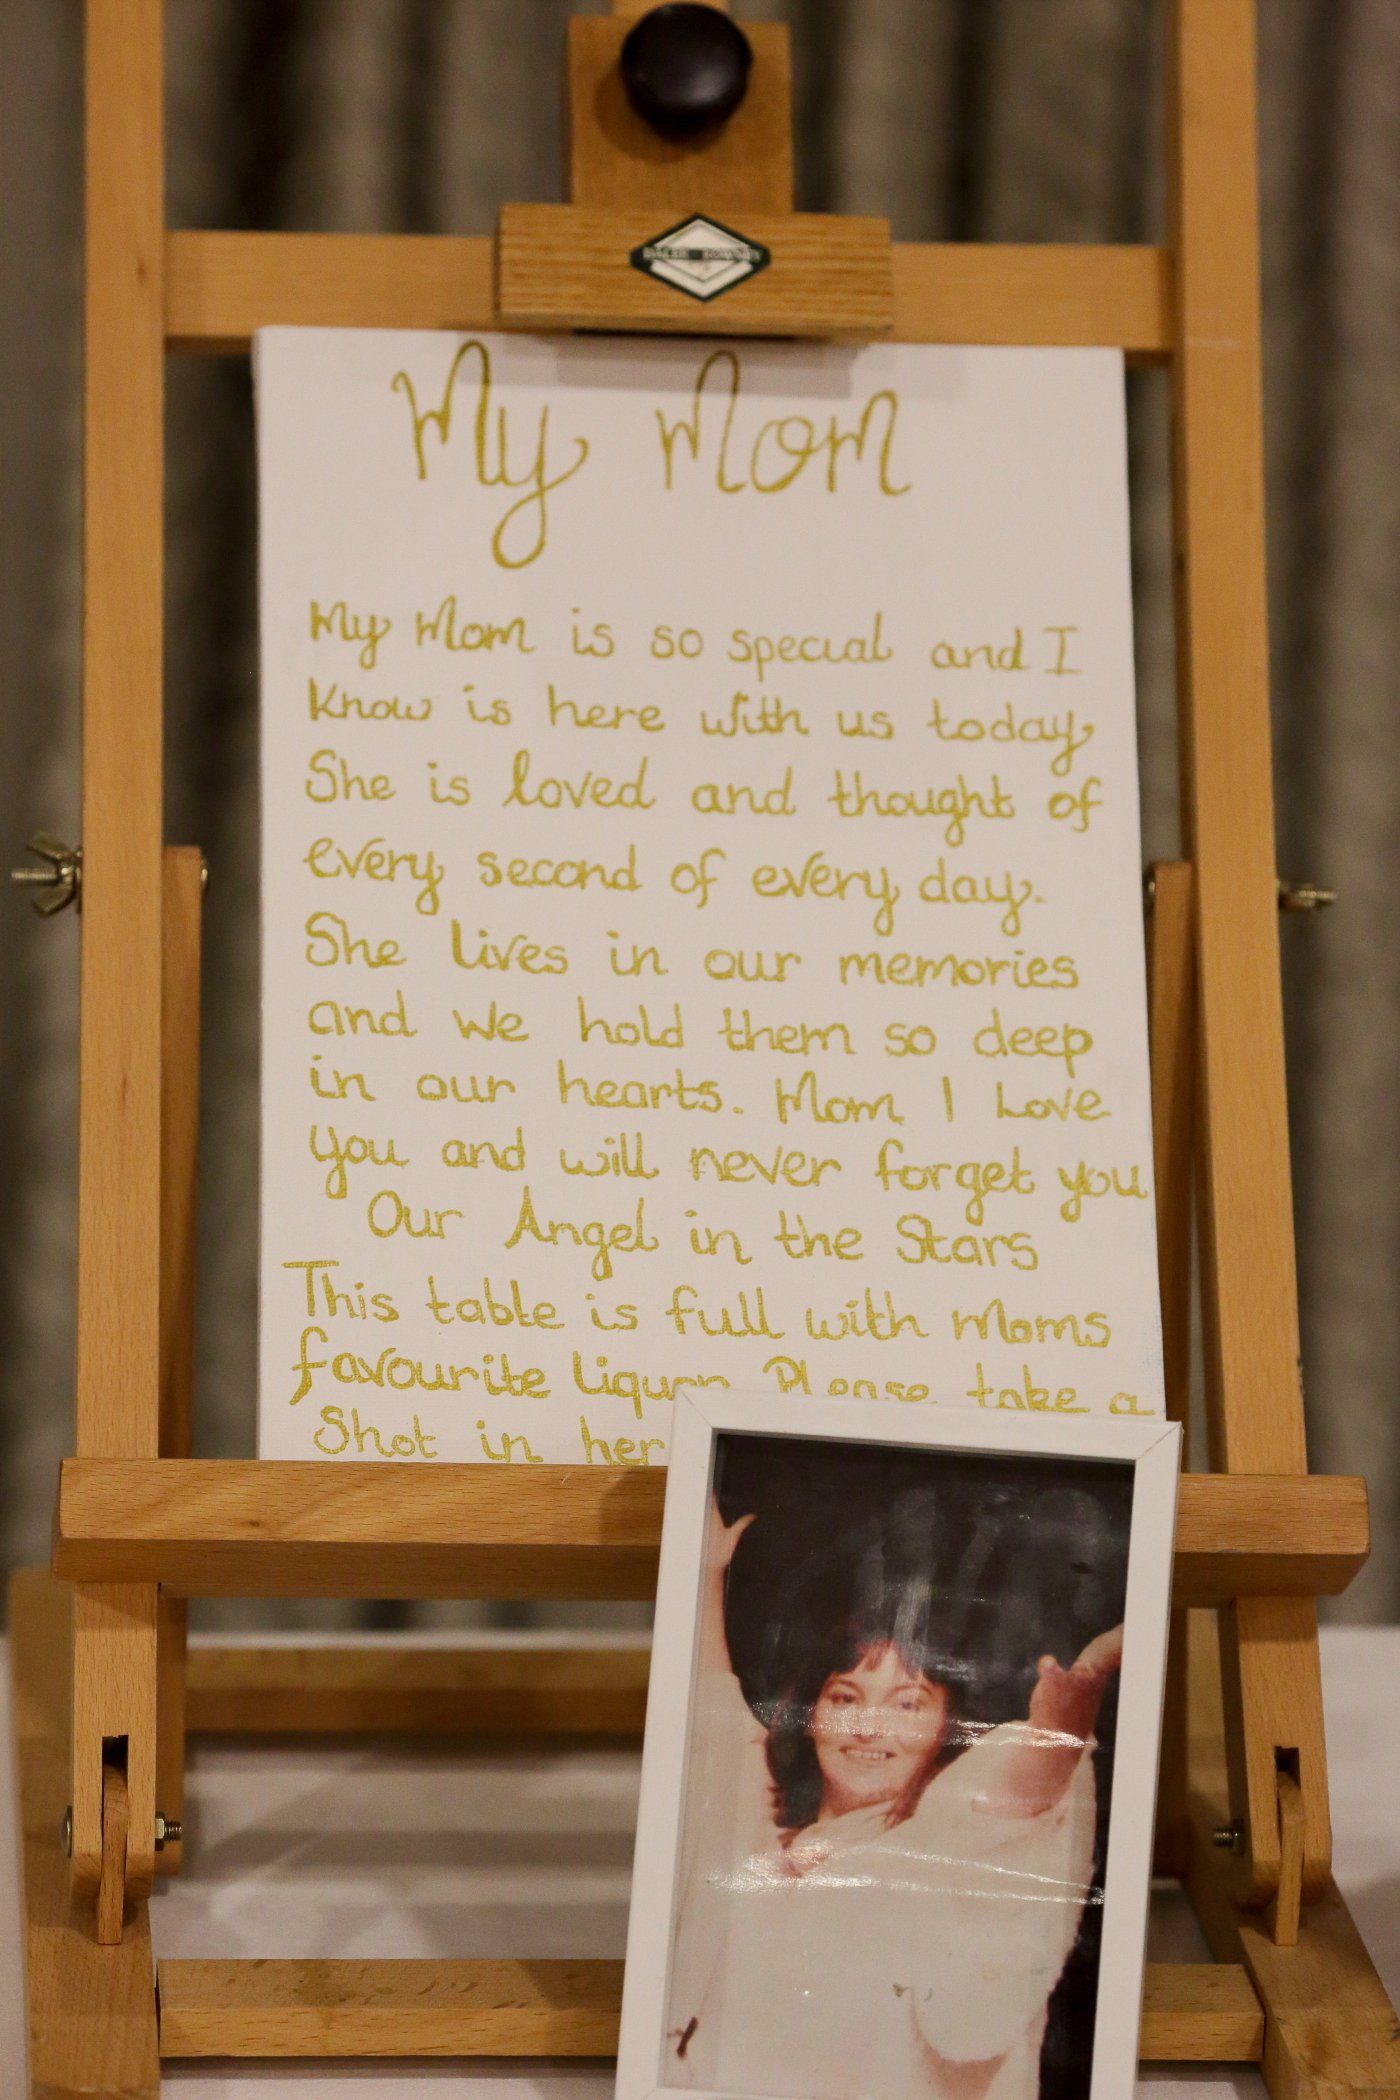 DALER ROWNEY
My Mom
My Mom is so special and I
know is here with us today
She is loved and thought of
every second of every day.
She lives in our memories
and we hold them so deep
in our hearts. Mom I Love
you and will never forget you
Our Angel in the Stars
This table is full with Moms
favourite liquor Please take a
Shot in her